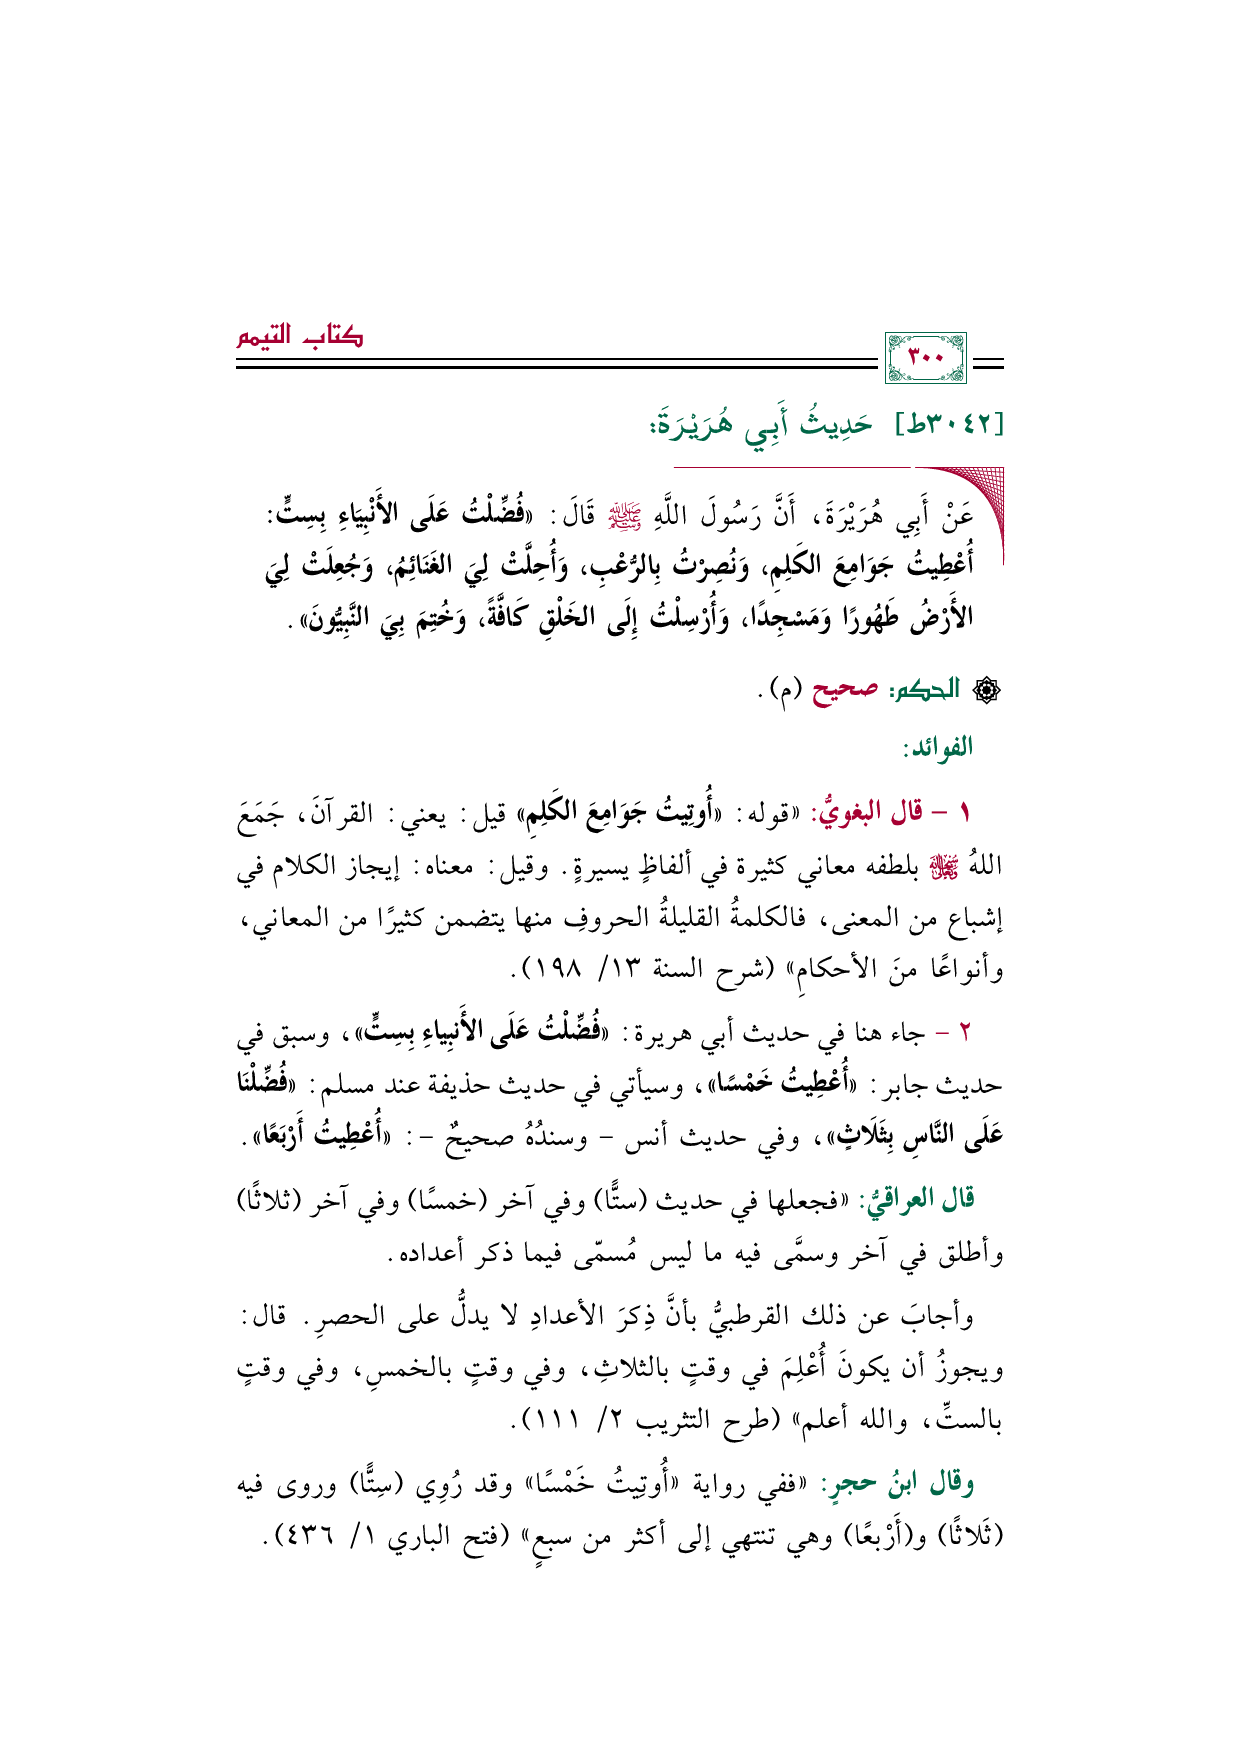 كتاب التيمم
٣٠٠
[٣٠٤٢ط] حَدِيثُ أَبِي هُرَيْرَةَ:
عَنْ أَبِي هُرَيْرَةَ، أَنَّ رَسُولَ اللَّهِ ﷺ قَالَ: «فُضِّلْتُ عَلَى الأَنْبِيَاءِ بِسِتٍّ:
أُعْطِيتُ جَوَامِعَ الكَلِمِ، وَنُصِرْتُ بِالرُّعْبِ، وَأُحِلَّتْ لِيَ الغَنَائِمُ، وَجُعِلَتْ لِيَ
الأَرْضُ طَهُورًا وَمَسْجِدًا، وَأُرْسِلْتُ إِلَى الخَلْقِ كَافَّةً، وَخُتِمَ بِيَ النَّبِيُّونَ».
الحكم: صحيح (م).
الفوائد:
١ – قال البغويُّ: «قوله: «أُوتِيتُ جَوَامِعَ الكَلِمِ» قيل: يعني: القرآنَ، جَمَعَ
اللهُ ﷻ بلطفه معاني كثيرة في ألفاظٍ يسيرةٍ. وقيل: معناه: إيجاز الكلام في
إشباع من المعنى، فالكلمةُ القليلةُ الحروفِ منها يتضمن كثيرًا من المعاني،
وأنواعًا منَ الأحكامِ» (شرح السنة ١٣/ ١٩٨).
٢ – جاء هنا في حديث أبي هريرة: «فُضِّلْتُ عَلَى الأَنبِياءِ بِسِتٍّ»، وسبق في
حديث جابر: «أُعْطِيتُ خَمْسًا»، وسيأتي في حديث حذيفة عند مسلم: «فُضِّلْنَا
عَلَى النَّاسِ بِثَلَاثٍ»، وفي حديث أنس – وسندُهُ صحيحٌ –: «أُعْطِيتُ أَرْبَعًا».
قال العراقيُّ: «فجعلها في حديث (ستًّا) وفي آخر (خمسًا) وفي آخر (ثلاثًا)
وأطلق في آخر وسمَّى فيه ما ليس مُسمّى فيما ذكر أعداده.
وأجابَ عن ذلك القرطبيُّ بأنَّ ذِكرَ الأعدادِ لا يدلُّ على الحصرِ. قال:
ويجوزُ أن يكونَ أُعْلِمَ في وقتٍ بالثلاثِ، وفي وقتٍ بالخمسِ، وفي وقتٍ
بالستِّ، والله أعلم» (طرح التثريب ٢/ ١١١).
وقال ابنُ حجرٍ: «ففي رواية «أُوتِيتُ خَمْسًا» وقد رُوِي (سِتًّا) وروى فيه
(ثَلاثًا) و(أَرْبعًا) وهي تنتهي إلى أكثر من سبعٍ» (فتح الباري ١/ ٤٣٦).